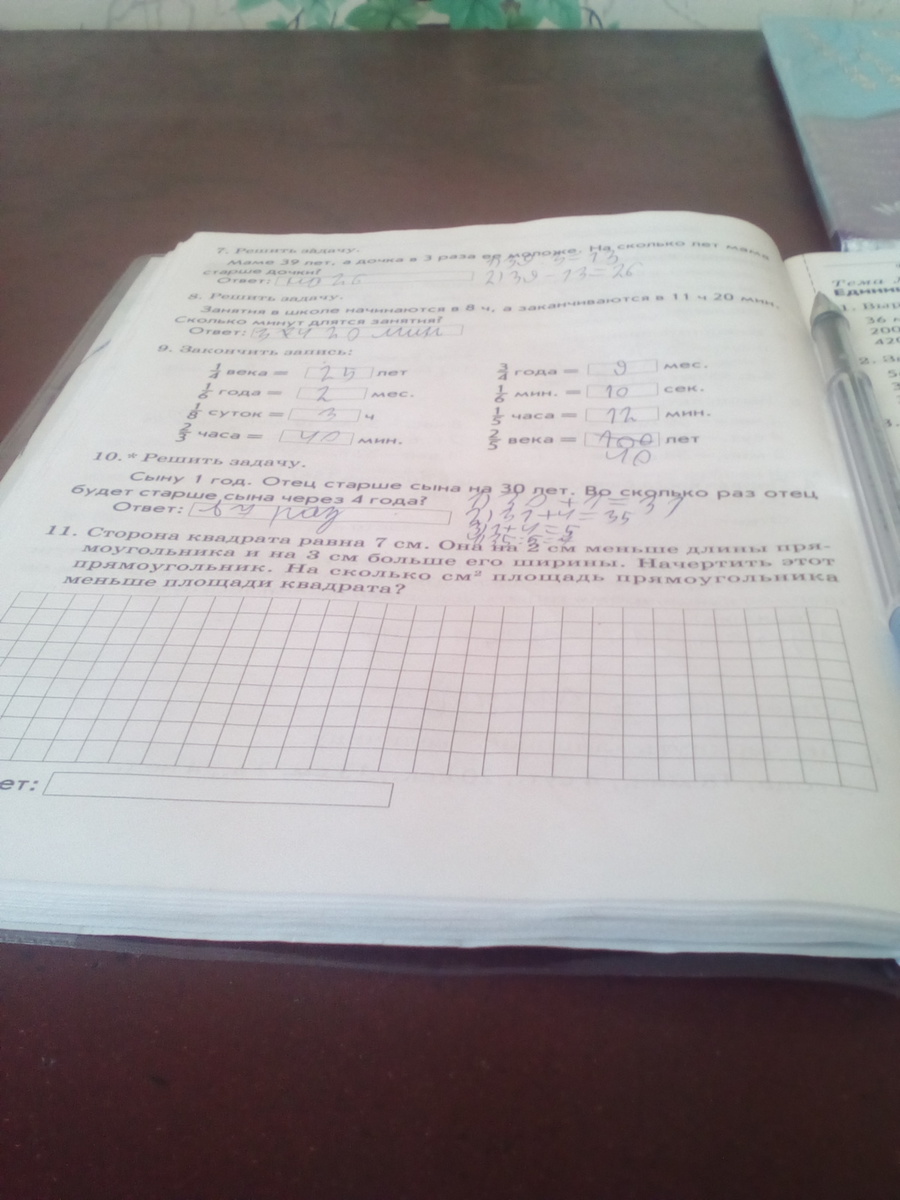 7. Решить задачу.
Маме 39 лет, а дочка в 3 раза её моложе. На сколько лет мама
старше дочки?
Ответ: на 26
1) 39 : 3 = 13
2) 39 - 13 = 26
8. Решить задачу.
Занятия в школе начинаются в 8 ч, а заканчиваются в 11 ч 20 мин.
Сколько минут длятся занятия?
Ответ: 3 ч 20 мин
9. Закончить запись:
1/4 века = 25 лет
3/4 года = 9 мес.
1/6 года = 2 мес.
1/6 мин. = 10 сек.
1/8 суток = 3 ч
1/5 часа = 12 мин.
2/3 часа = 40 мин.
2/5 века = 100 лет
40
10.* Решить задачу.
Сыну 1 год. Отец старше сына на 30 лет. Во сколько раз отец
будет старше сына через 4 года?
Ответ: в 7 раз
1) 30 + 1 = 31
2) 31 + 4 = 35
3) 1 + 4 = 5
4) 35 : 5 = 7
11. Сторона квадрата равна 7 см. Она на 2 см меньше длины пря-
моугольника и на 3 см больше его ширины. Начертить этот
прямоугольник. На сколько см² площадь прямоугольника
меньше площади квадрата?
ет:
Тема
Единиц
1. Выр
36
200
420
2. За